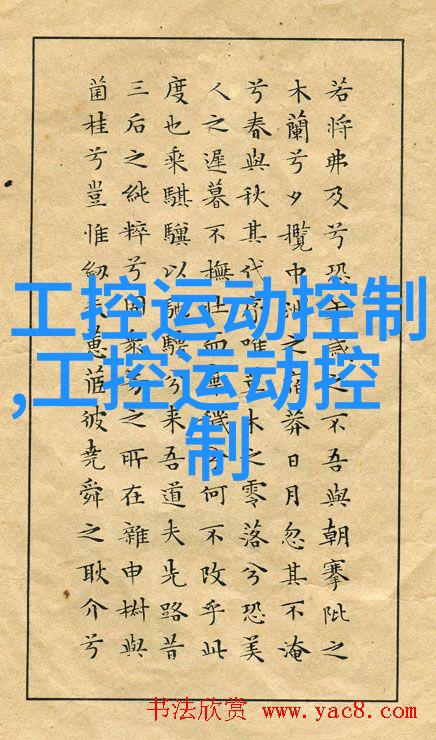 若將弗及兮恐年歲之不吾與朝搴阰之
木蘭兮夕攬中洲之宿莽日月忽其不淹
兮春與秋其代序唯草木之零落兮恐美
人之遲暮不撫壯而棄穢兮何不改乎此
度也乘騏驥以馳騁兮来吾道夫先路昔
三后之純粹兮固衆芳之所在雜申椒與
菌桂兮豈惟紉夫蕙茝彼堯舜之耿介兮
工控运动控制
,工控运动控
制
书法欣赏 www.yac8.com